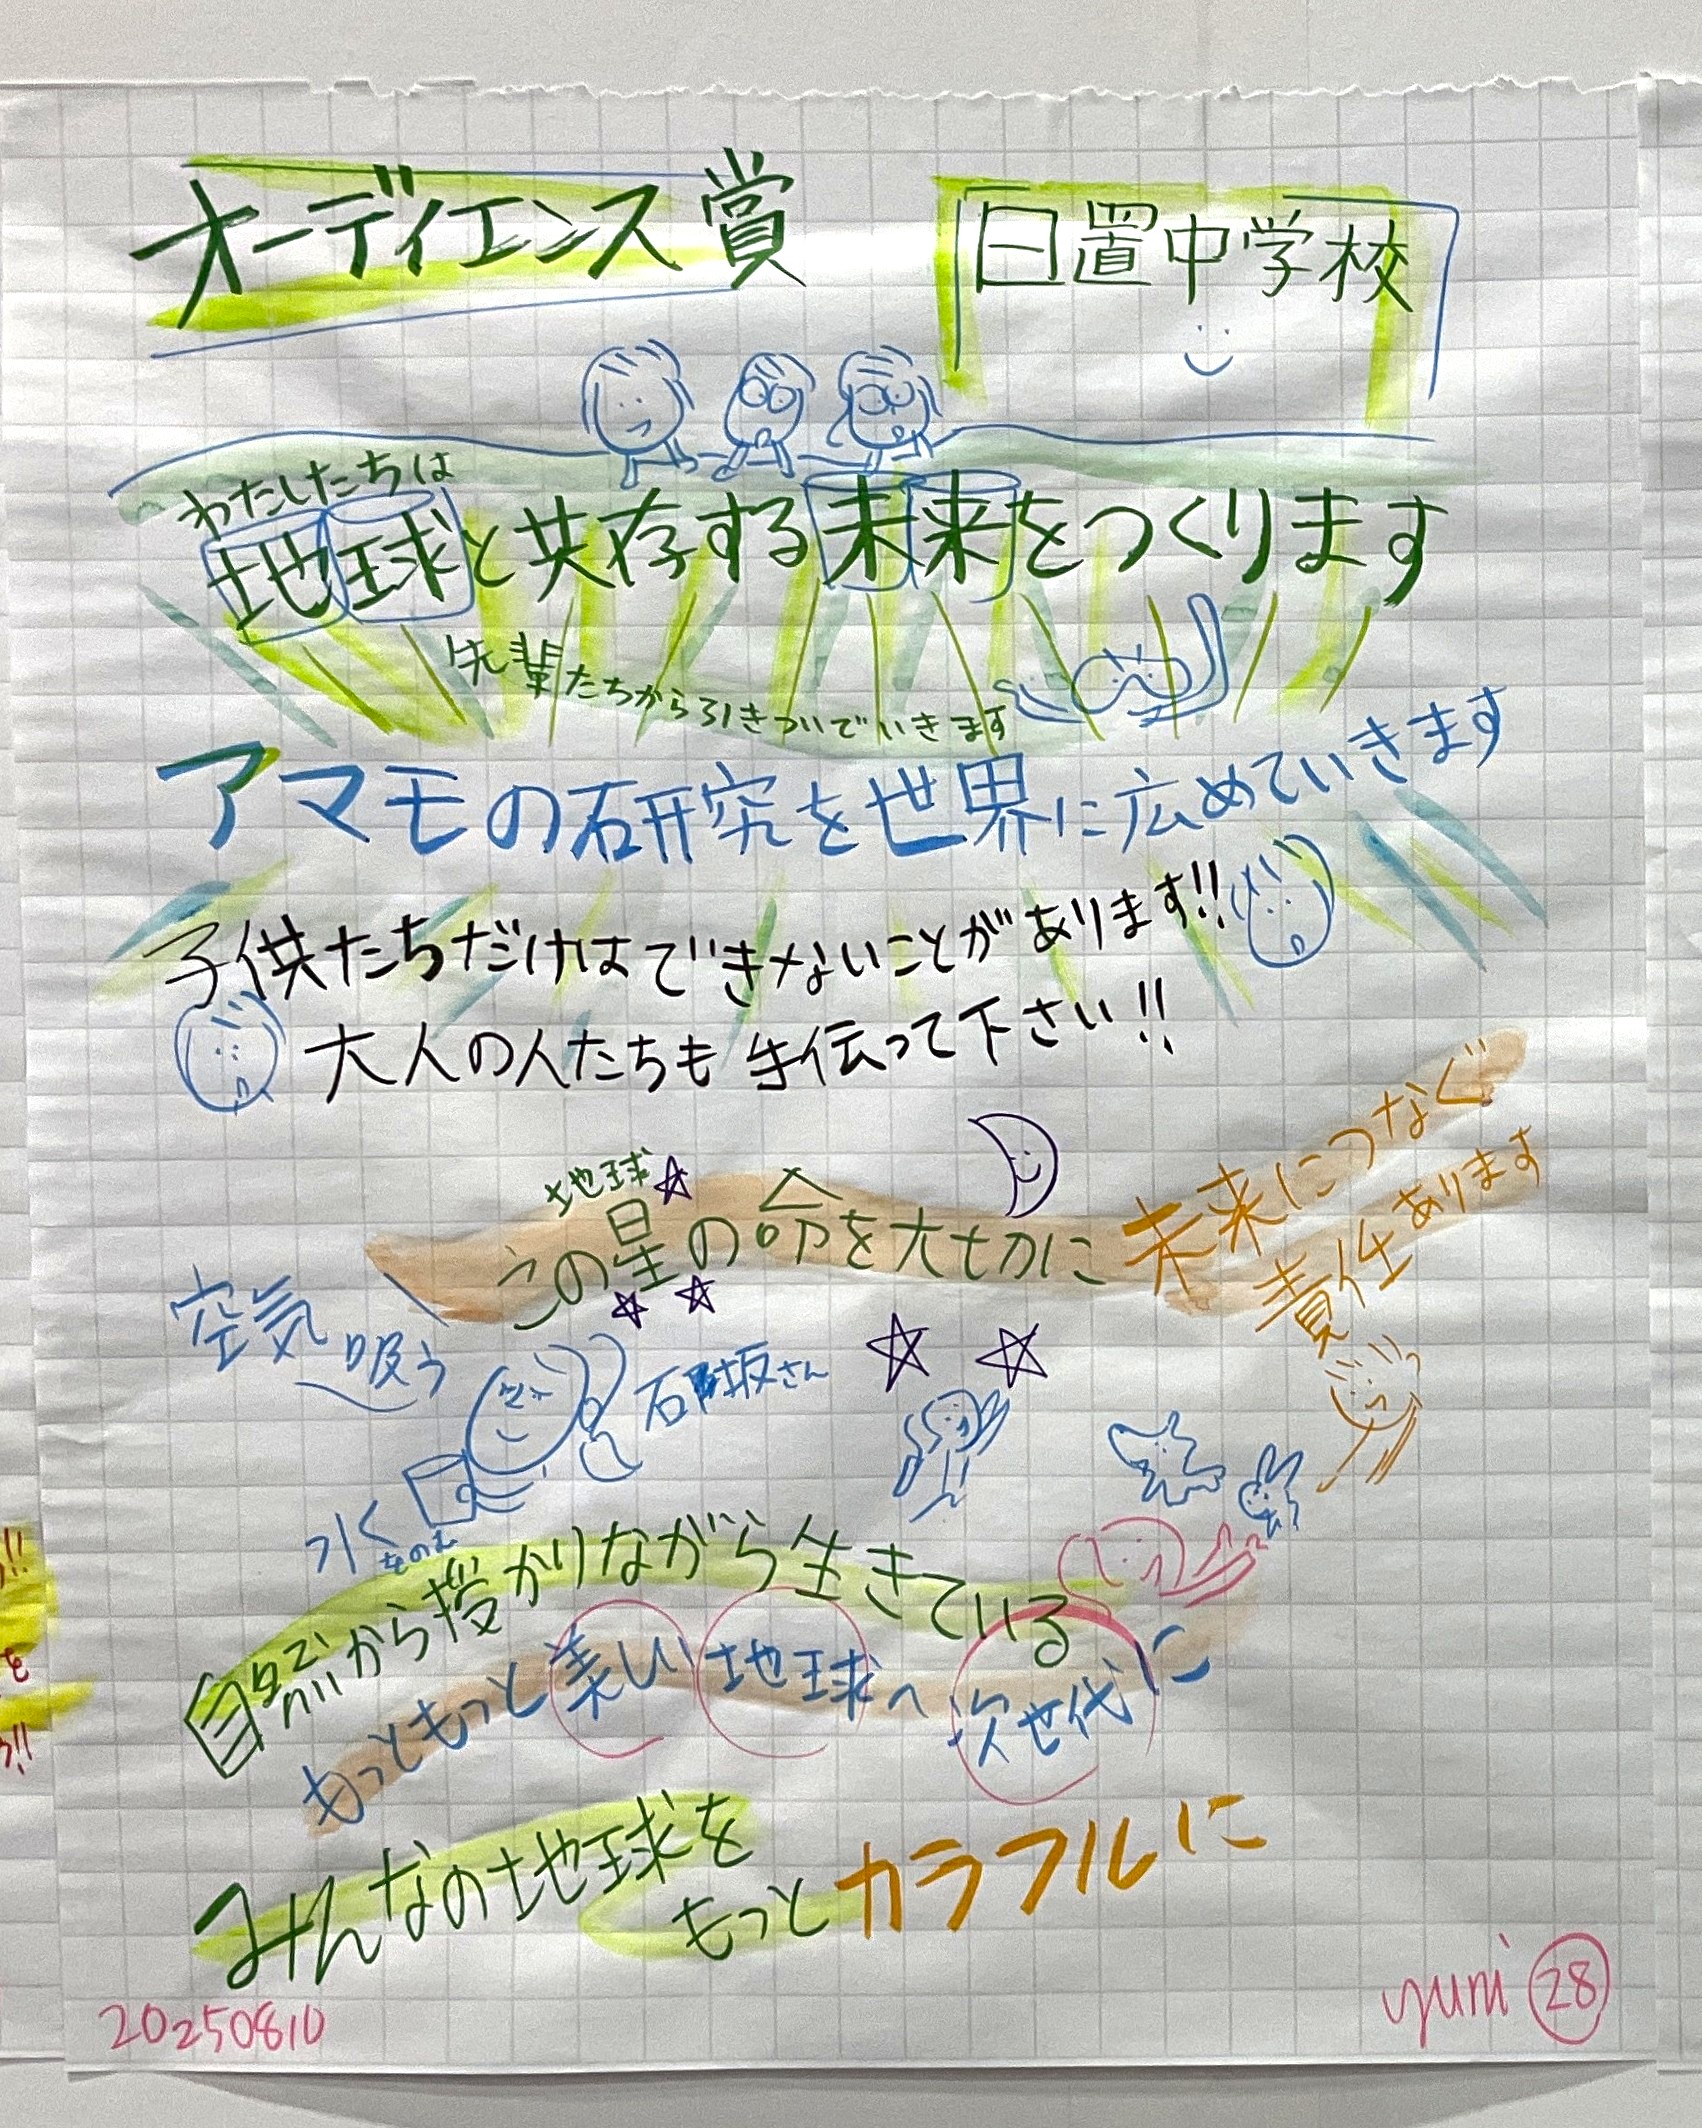 オーディエンス賞
日置中学校
わたしたちは
地球と共存する未来をつくります
先輩たちから引きついでいきます
アマモの研究を世界に広めていきます
子供たちだけはできないことがあります!!
大人の人たちも手伝って下さい!!
地球
この星の命を大切に
未来につなぐ
責任あります
空気
吸う
坂さん
をのむ
自然から授かりながら生きている
もっともっと美しい地球へ次世代に
みんなの地球を
もっとカラフルに
20250810
yumi 28